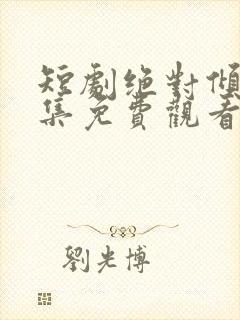 短劇绝對傾
集免費觀看
劉光博